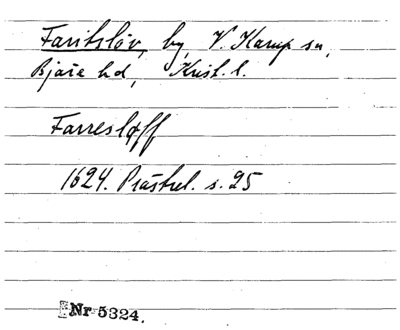 Faritslöv, by, V. Karup sn,
Bjäre hd, Krist. l.
Farreslöff
1624. Prästrel. s. 25
Nr 5324.